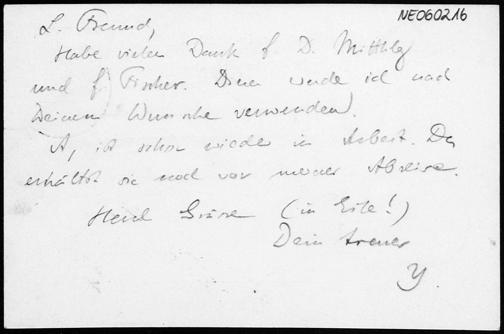 NE060216
L. Freund,
Habe vielen Dank f. D. Mitthlg
und f. Fischer. Diese werde ich nach
Deinem Wunsche verwenden.
A, ist schon wieder in Arbeit. Du
erhältst sie noch vor meiner Abreise.
Herzl Grüsse (in Eile!)
Dein treuer
Y.